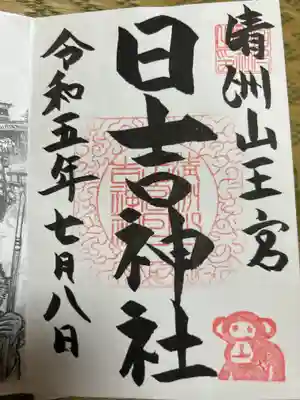 清洲山王宮
日吉神社
令和五年七月八日